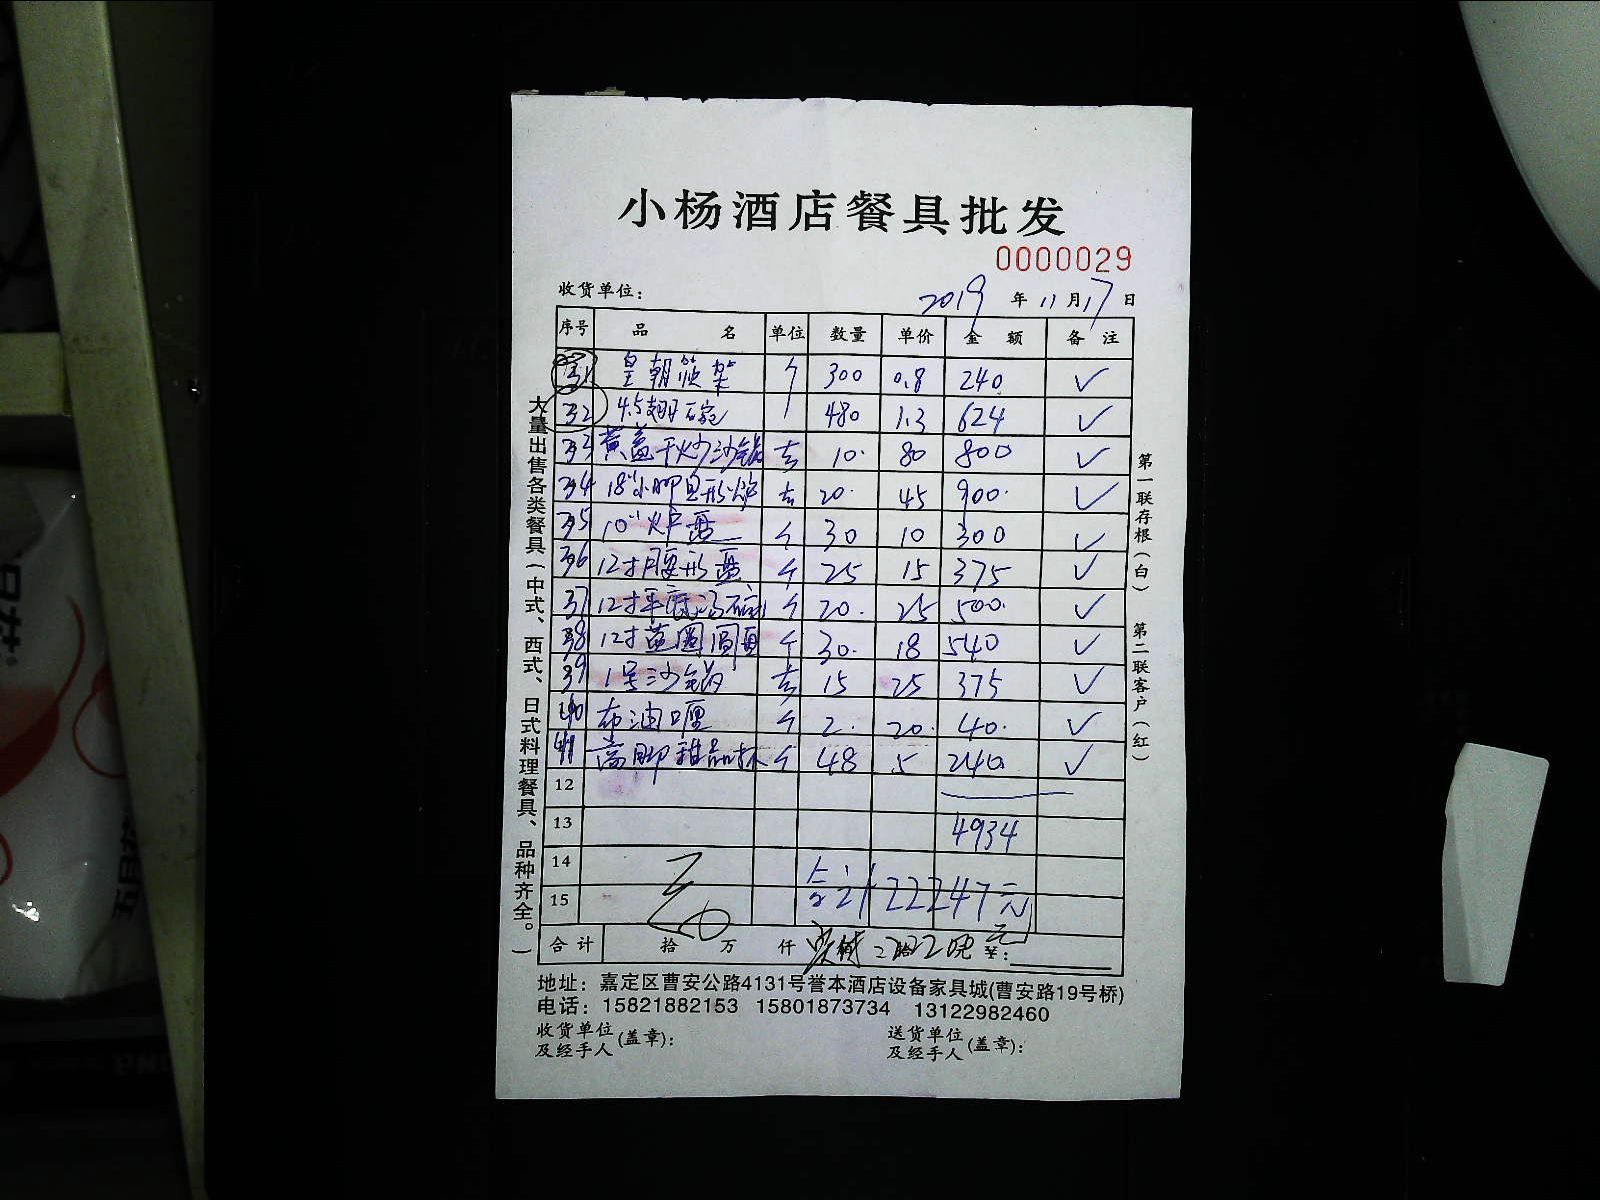 小杨酒店餐具批发
0000029
收货单位： 2019 年 11 月 17 日
序号 品 名 单位 数量 单价 金 额 备 注
31 皇朝筷架 个 300 0.8 240 ✓
32 4.5翅碗 480 1.3 624 ✓
33 黄盖干炒沙锅 套 10. 80 800 ✓
34 18"小脚鱼形炉 套 20. 45 900. ✓
35 10"炉盘 个 30 10 300 ✓
36 12寸腰形盘 个 25 15 375 ✓
37 12寸平底汤碗 个 20. 25 500. ✓
38 12寸蓝圈圆盘 个 30. 18 540 ✓
39 1号沙锅 套 15 25 375 ✓
40 布油喱 个 2. 20. 40. ✓
41 高脚甜品杯 个 48 5 240 ✓
12
13 4934
14
15 合计 22247元
合计 拾 万 仟
地址：嘉定区曹安公路4131号誉本酒店设备家具城(曹安路19号桥)
电话：15821882153 15801873734 13122982460
收货单位及经手人(盖章)： 送货单位及经手人(盖章)：
大量出售各类餐具(中式、西式、日式料理餐具、品种齐全。)
第一联存根(白) 第二联客户(红)